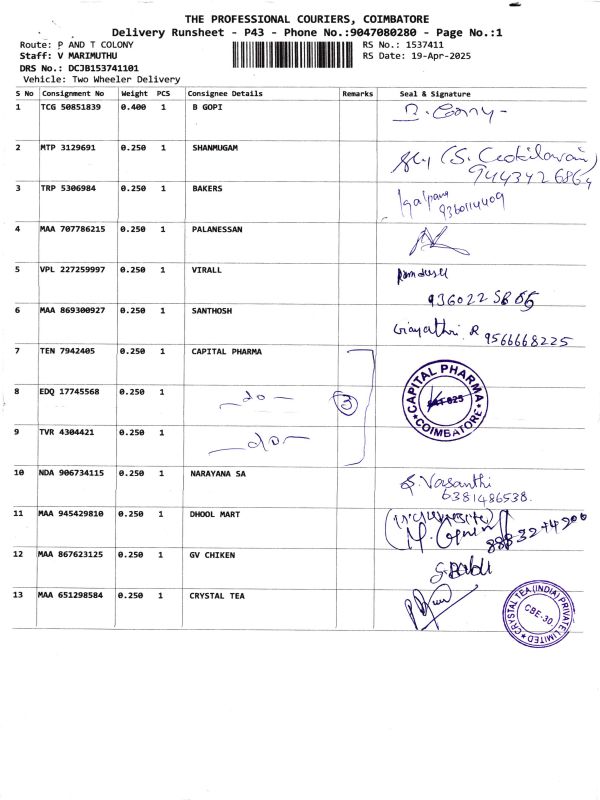 THE PROFESSIONAL COURIERS, COIMBATORE
Delivery Runsheet - P43 - Phone No.:9047080280 - Page No.:1
Route: P AND T COLONY
RS No.: 1537411
Staff: V MARIMUTHU
RS Date: 19-Apr-2025
DRS No.: DCJB153741101
Vehicle: Two Wheeler Delivery
S No Consignment No Weight PCS Consignee Details Remarks Seal & Signature
1 TCG 50851839 0.400 1 B GOPI
2 MTP 3129691 0.250 1 SHANMUGAM
9443426864
3 TRP 5306984 0.250 1 BAKERS
9360114409
4 MAA 707786215 0.250 1 PALANESSAN
5 VPL 227259997 0.250 1 VIRALL
6 MAA 869300927 0.250 1 SANTHOSH
Gayathri. R 9566668225
7 TEN 7942405 0.250 1 CAPITAL PHARMA
CAPITAL PHARMA
COIMBATORE
8 EDQ 17745568 0.250 1 —do— 3
9 TVR 4304421 0.250 1 —do—
10 NDA 906734115 0.250 1 NARAYANA SA S. Vasanthi
6381486538.
11 MAA 945429810 0.250 1 DHOOL MART
12 MAA 867623125 0.250 1 GV CHIKEN
13 MAA 651298584 0.250 1 CRYSTAL TEA
CRYSTAL TEA (INDIA) PRIVATE LIMITED
CBE-30.